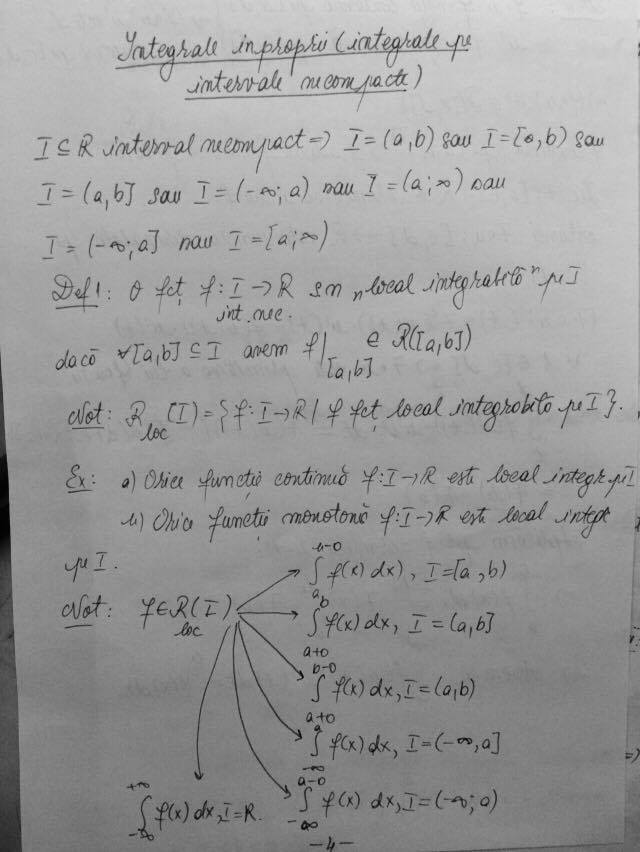 Integrale inproprii (integrale pe
intervale necompacte)
I ⊆ R interval necompact => I = (a,b) sau I = [a,b) sau
I = (a,b] sau I = (-∞; a) sau I = (a; ∞) sau
I = (-∞; a] sau I = [a; ∞)
Def 1: O fct f: I → R s.n „local integrabilă" pe I
int. nec.
dacă ∀[a,b] ⊆ I avem f|[a,b] ∈ R([a,b])
Not: R_loc(I) = {f: I → R | f fct, local integrabilă pe I}.
Ex: a) Orice funcție continuă f: I → R este local integr. pe I
b) Orice funcție monotonă f: I → R este local integr
pe I.
Not: f ∈ R_loc(I)
∫_a^{b-0} f(x) dx), I = [a,b)
∫_{a+0}^b f(x) dx, I = (a,b]
∫_{a+0}^{b-0} f(x) dx, I = (a,b)
∫_{-∞}^a f(x) dx, I = (-∞, a]
∫_{-∞}^{a-0} f(x) dx, I = (-∞; a)
∫_{-∞}^{+∞} f(x) dx, I = R.
-4-